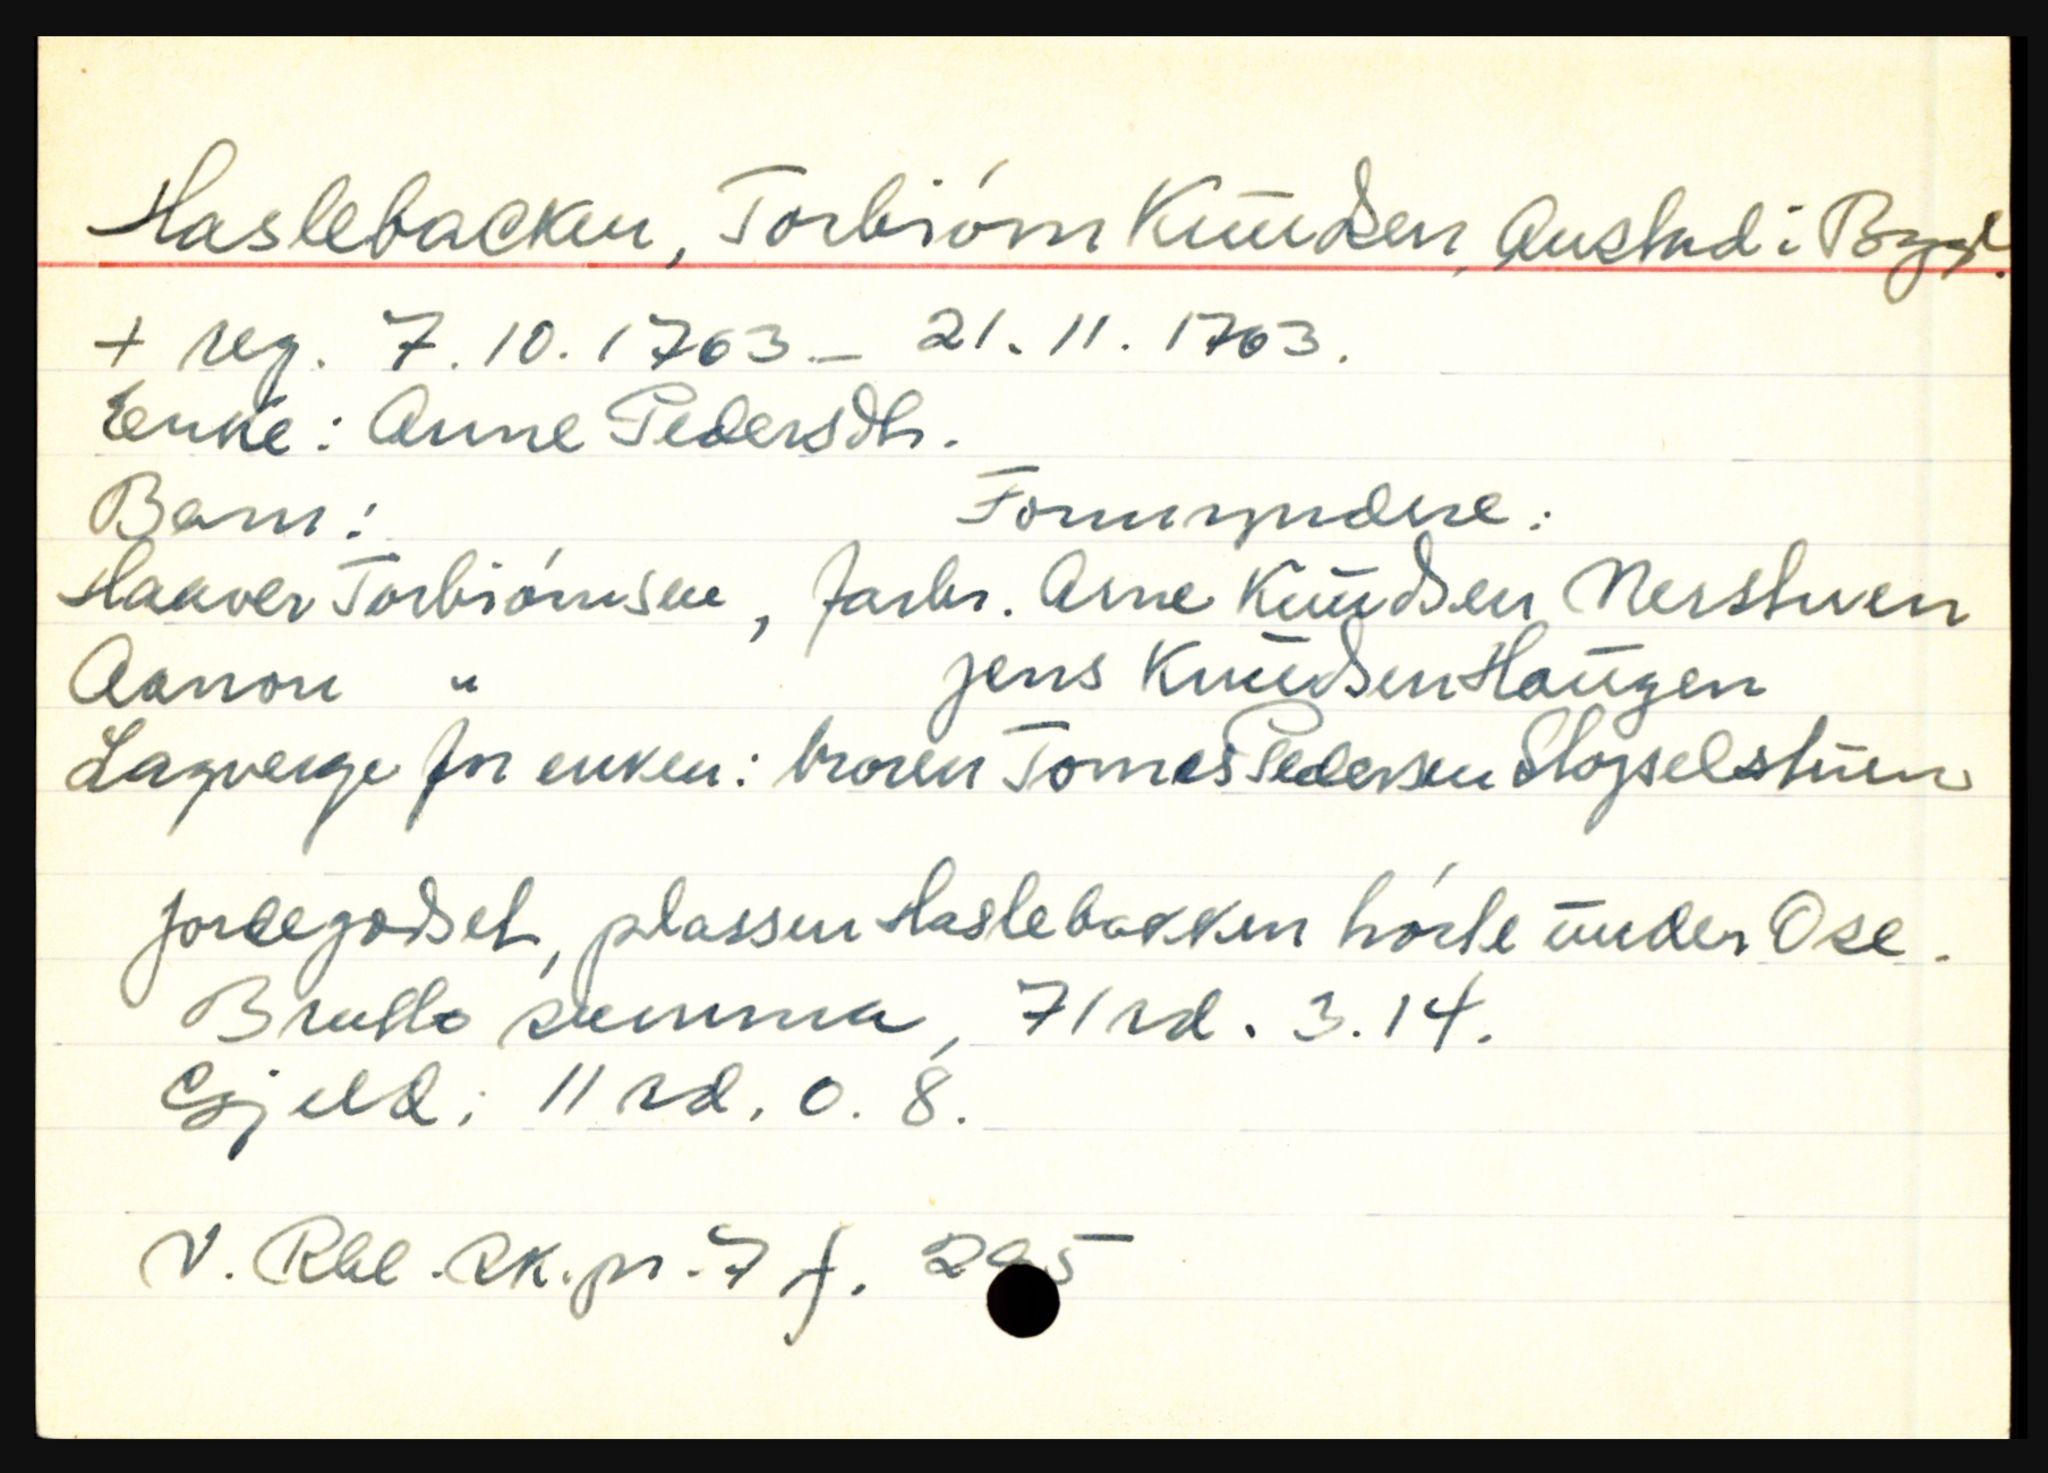 Haslebacken, Torbiórn Knudsen, Austad i Bygl.
+ reg. 7.10.1763 – 21.11.1763.
Enke: Anne Pedersdtr.
Barn: Formyndere:
Haaver Torbiórnsen, farbr. Arne Knudsen Nerstuen
Aanon " Jens Knudsen Haugen
Lagverge for enken: broren Tomes Pedersen
Jordegodset, plassen Haslebakken hórte under Ose.
Brutto summa, 71 rd. 3.14.
Gjeld: 11 rd. 0.8.
V. Rbl. sk.pr. 7 f.